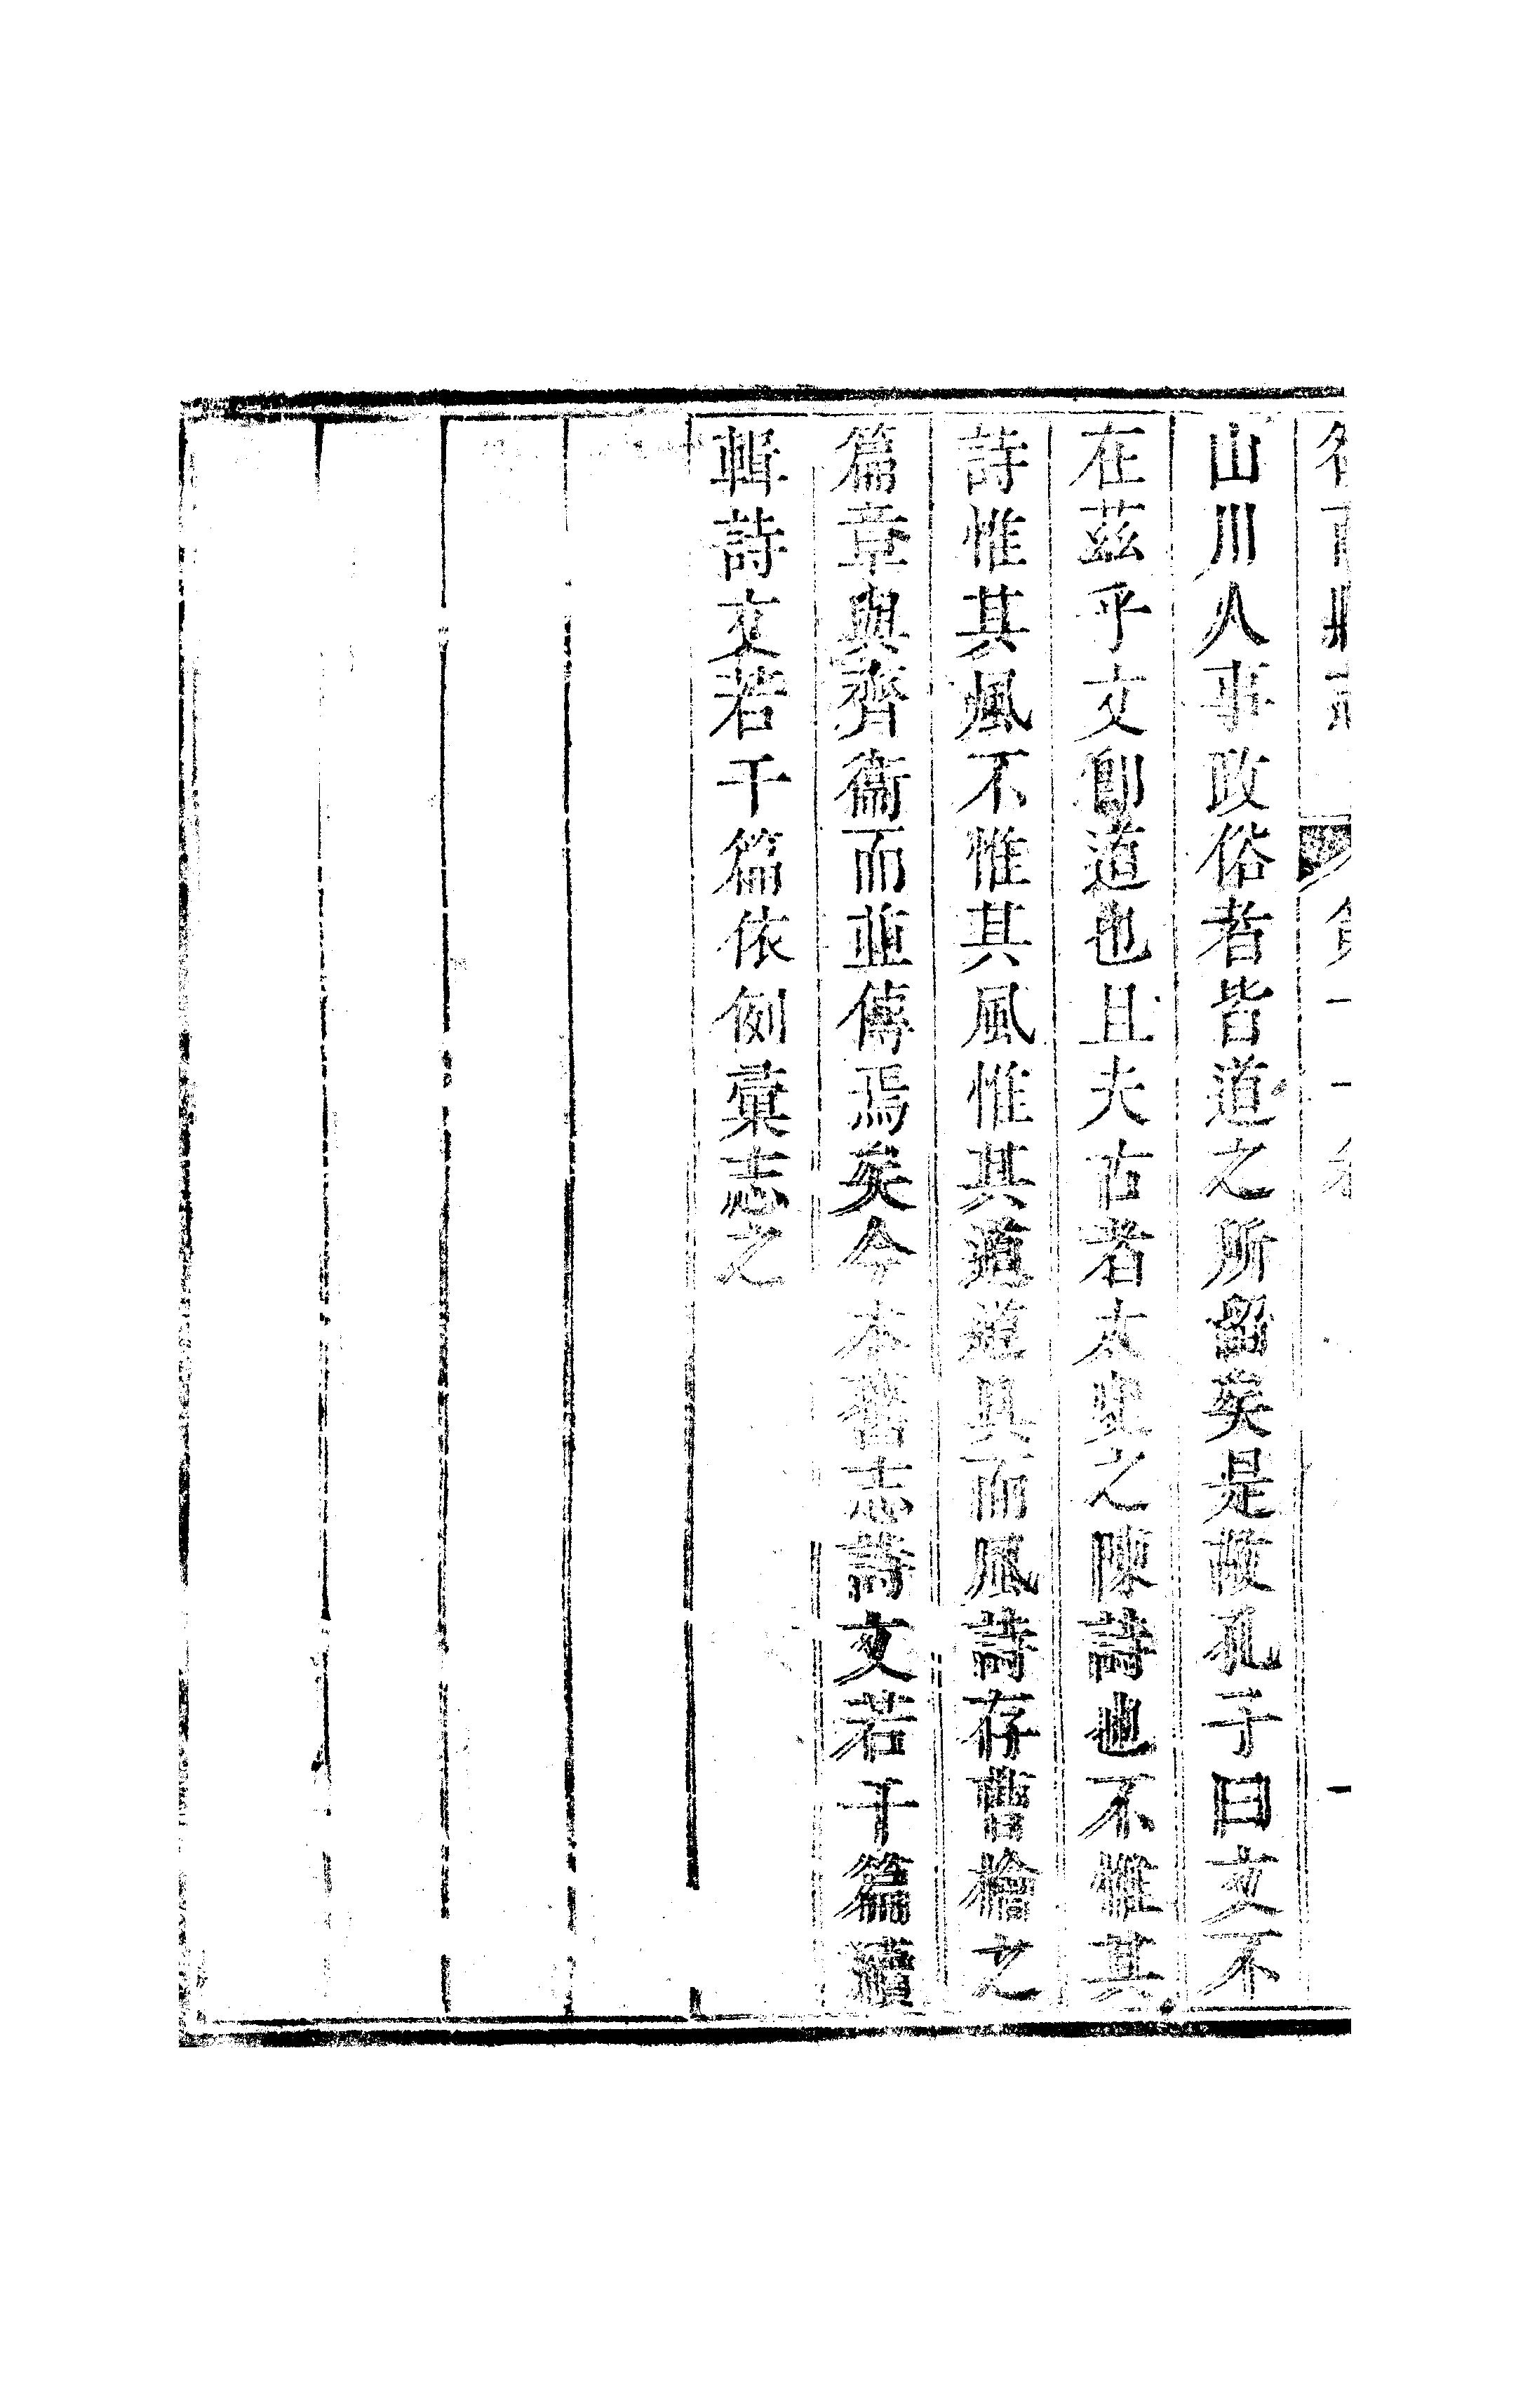 山川人事政俗者皆道之所留矣是故孔子曰文不
在茲乎文卽道也且夫古者太史之陳詩也不惟其
詩惟其風不惟其風惟其道道具而風詩存曹檜之
篇章與齊衞而並傳焉矣今本舊志詩文若干篇續
輯詩文若干篇依例彙志之